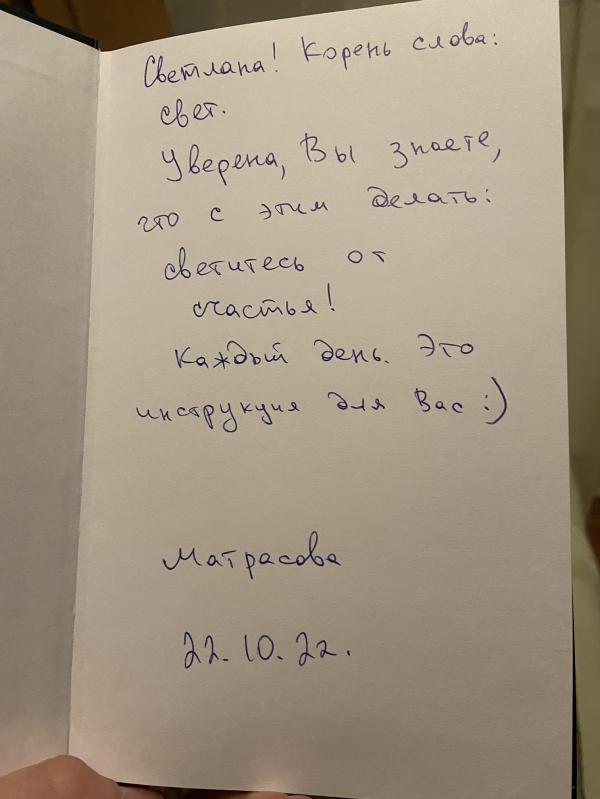 Светлана! Корень слова:
свет.
Уверена, Вы знаете,
что с этим делать:
светитесь от
счастья!
Каждый день. Это
инструкция для Вас :)
Матрасова
22.10.22.